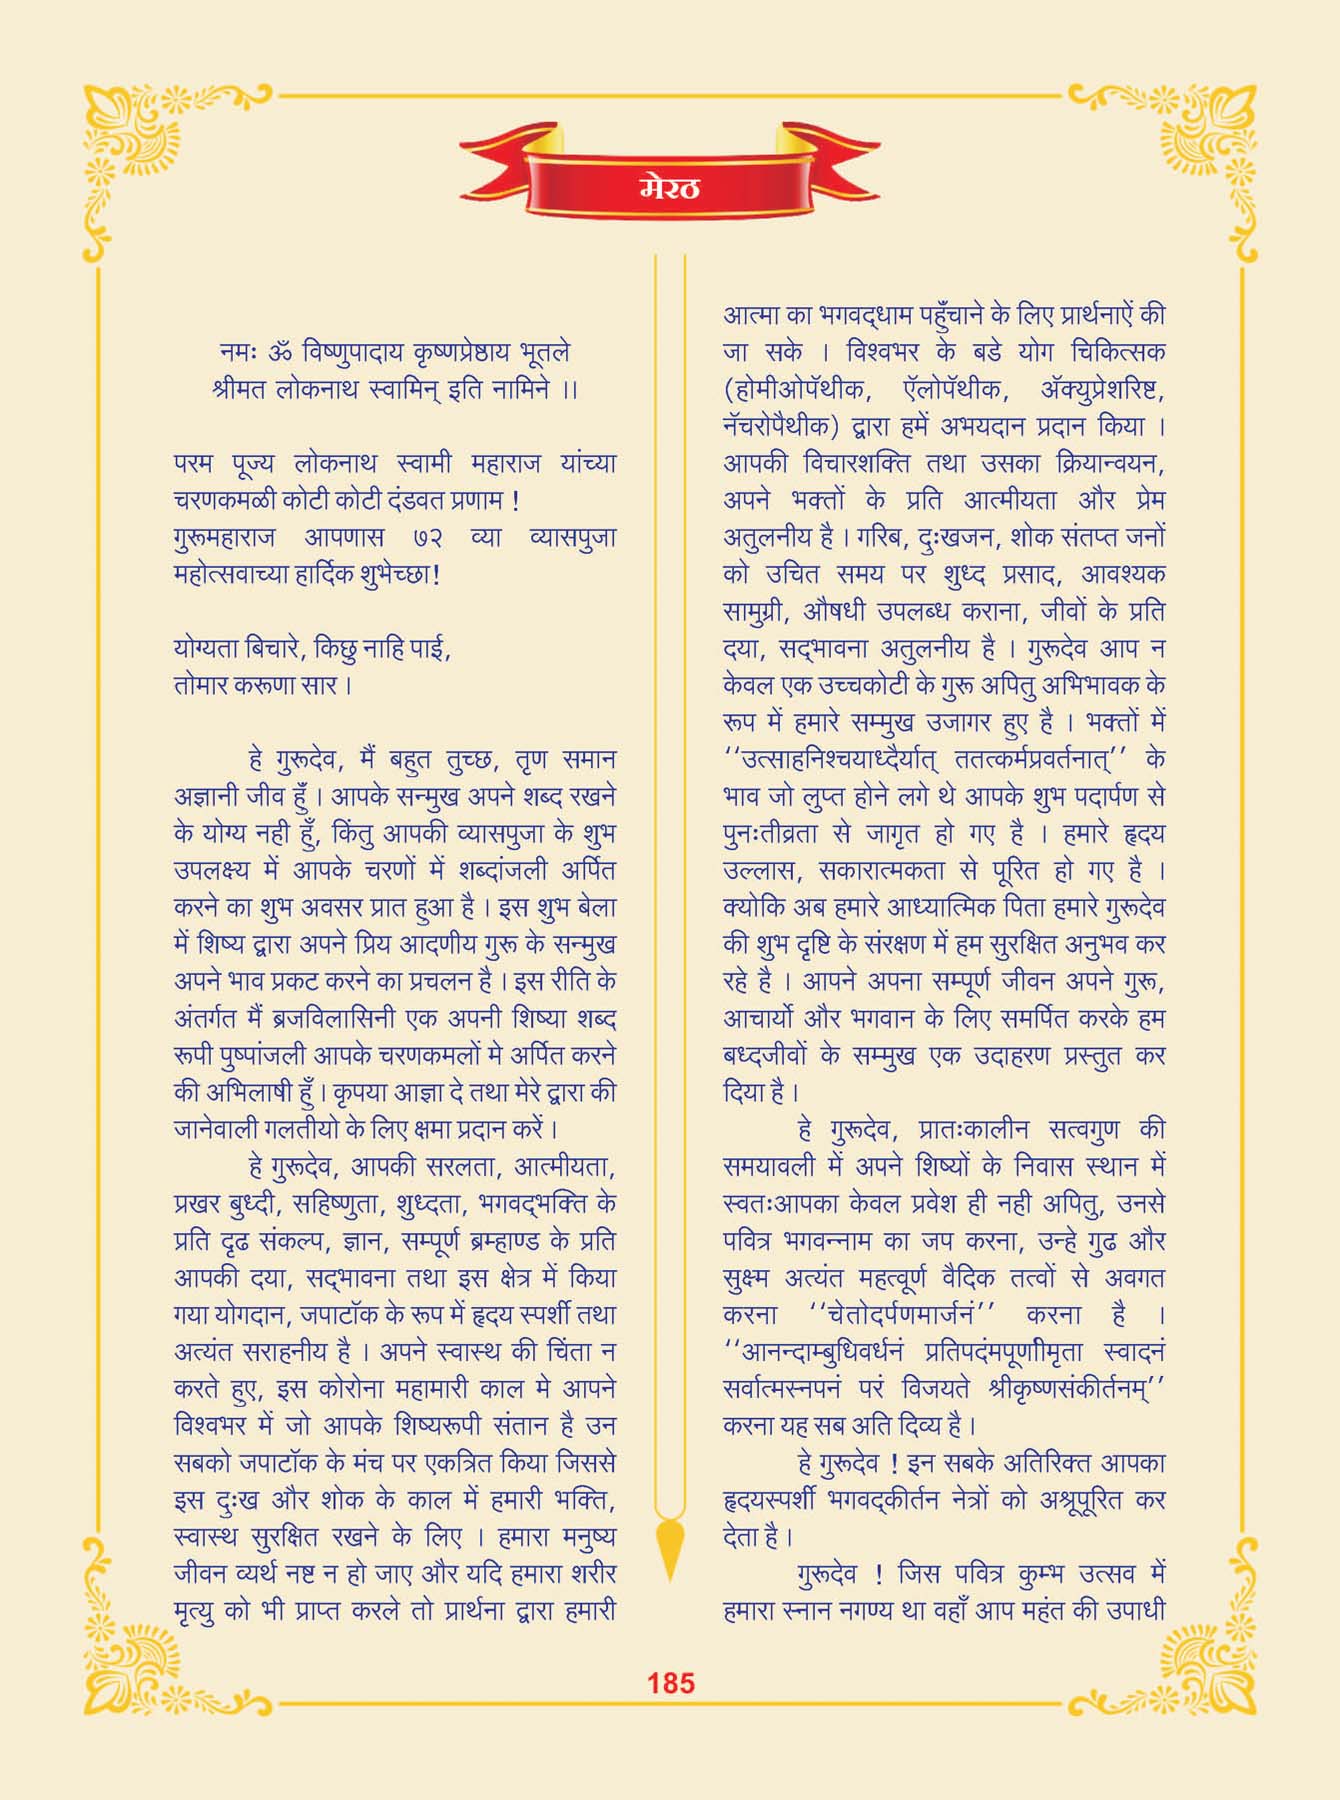 मेरठ
नमः ॐ विष्णुपादाय कृष्णप्रेष्ठाय भूतले
श्रीमत लोकनाथ स्वामिन् इति नामिने ।।
परम पूज्य लोकनाथ स्वामी महाराज यांच्या
चरणकमळी कोटी कोटी दंडवत प्रणाम !
गुरूमहाराज आपणास ७२ व्या व्यासपुजा
महोत्सवाच्या हार्दिक शुभेच्छा!
योग्यता बिचारे, किछु नाहि पाई,
तोमार करूणा सार ।
हे गुरूदेव, मैं बहुत तुच्छ, तृण समान
अज्ञानी जीव हुँ । आपके सन्मुख अपने शब्द रखने
के योग्य नही हुँ, किंतु आपकी व्यासपुजा के शुभ
उपलक्ष्य में आपके चरणों में शब्दांजली अर्पित
करने का शुभ अवसर प्रात हुआ है । इस शुभ बेला
में शिष्य द्वारा अपने प्रिय आदणीय गुरू के सन्मुख
अपने भाव प्रकट करने का प्रचलन है । इस रीति के
अंतर्गत मैं ब्रजविलासिनी एक अपनी शिष्या शब्द
रूपी पुष्पांजली आपके चरणकमलों मे अर्पित करने
की अभिलाषी हुँ । कृपया आज्ञा दे तथा मेरे द्वारा की
जानेवाली गलतीयो के लिए क्षमा प्रदान करें ।
हे गुरूदेव, आपकी सरलता, आत्मीयता,
प्रखर बुध्दी, सहिष्णुता, शुध्दता, भगवद्‌भक्ति के
प्रति दृढ संकल्प, ज्ञान, सम्पूर्ण ब्रम्हाण्ड के प्रति
आपकी दया, सद्‌भावना तथा इस क्षेत्र में किया
गया योगदान, जपाटॉक के रूप में हृदय स्पर्शी तथा
अत्यंत सराहनीय है । अपने स्वास्थ की चिंता न
करते हुए, इस कोरोना महामारी काल मे आपने
विश्वभर में जो आपके शिष्यरूपी संतान है उन
सबको जपाटॉक के मंच पर एकत्रित किया जिससे
इस दुःख और शोक के काल में हमारी भक्ति,
स्वास्थ सुरक्षित रखने के लिए । हमारा मनुष्य
जीवन व्यर्थ नष्ट न हो जाए और यदि हमारा शरीर
मृत्यु को भी प्राप्त करले तो प्रार्थना द्वारा हमारी
आत्मा का भगवद्‌धाम पहुँचाने के लिए प्रार्थनाऐं की
जा सके । विश्वभर के बडे योग चिकित्सक
(होमीओपॅथीक, ऍलोपॅथीक, ॲक्युप्रेशरिष्ट,
नॅचरोपैथीक) द्वारा हमें अभयदान प्रदान किया ।
आपकी विचारशक्ति तथा उसका क्रियान्वयन,
अपने भक्तों के प्रति आत्मीयता और प्रेम
अतुलनीय है । गरिब, दुःखजन, शोक संतप्त जनों
को उचित समय पर शुध्द प्रसाद, आवश्यक
सामुग्री, औषधी उपलब्ध कराना, जीवों के प्रति
दया, सद्‌भावना अतुलनीय है । गुरूदेव आप न
केवल एक उच्चकोटी के गुरू अपितु अभिभावक के
रूप में हमारे सम्मुख उजागर हुए है । भक्तों में
‘‘उत्साहनिश्चयाध्दैर्यात् ततत्कर्मप्रवर्तनात्’’ के
भाव जो लुप्त होने लगे थे आपके शुभ पदार्पण से
पुनःतीव्रता से जागृत हो गए है । हमारे हृदय
उल्लास, सकारात्मकता से पूरित हो गए है ।
क्योकि अब हमारे आध्यात्मिक पिता हमारे गुरूदेव
की शुभ दृष्टि के संरक्षण में हम सुरक्षित अनुभव कर
रहे है । आपने अपना सम्पूर्ण जीवन अपने गुरू,
आचार्यो और भगवान के लिए समर्पित करके हम
बध्दजीवों के सम्मुख एक उदाहरण प्रस्तुत कर
दिया है ।
हे गुरूदेव, प्रातःकालीन सत्वगुण की
समयावली में अपने शिष्यों के निवास स्थान में
स्वतःआपका केवल प्रवेश ही नही अपितु, उनसे
पवित्र भगवन्नाम का जप करना, उन्हे गुढ और
सुक्ष्म अत्यंत महत्वूर्ण वैदिक तत्वों से अवगत
करना ‘‘चेतोदर्पणमार्जनं’’ करना है ।
‘‘आनन्दाम्बुधिवर्धनं प्रतिपदंमपूर्णामृता स्वादनं
सर्वात्मस्नपनं परं विजयते श्रीकृष्णसंकीर्तनम्’’
करना यह सब अति दिव्य है ।
हे गुरूदेव ! इन सबके अतिरिक्त आपका
हृदयस्पर्शी भगवद्‌कीर्तन नेत्रों को अश्रूपूरित कर
देता है ।
गुरूदेव ! जिस पवित्र कुम्भ उत्सव में
हमारा स्नान नगण्य था वहाँ आप महंत की उपाधी
185